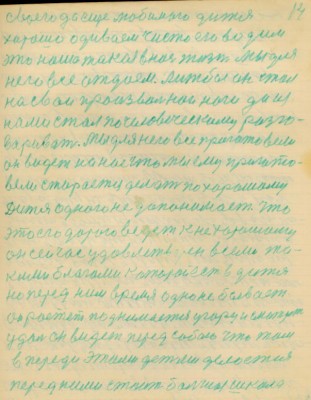 14
своего да еще любимого дитя
хорошо одиваем чисто его водим
это наша такая в ная жизнь мы для
него все отдаем. Лиж бы он стал
на свои произвольнаи ноги да и
нами стал по человическому разго-
варивать. Мы для него все приготовели
он видет на нас что мы ему пригото-
вели старается делать по харошому
Дитя одного не запоминает что
это его дорого ведет к не харошому
он сейчас удовлетв- ен всеми та-
кими благами которои есть в детя
но перед ним время одно не бывает
он растет поднимается у гору и смотрит
удаль он видет перед собою что там
в переди этими детями делается
перед ними стоит большая школа